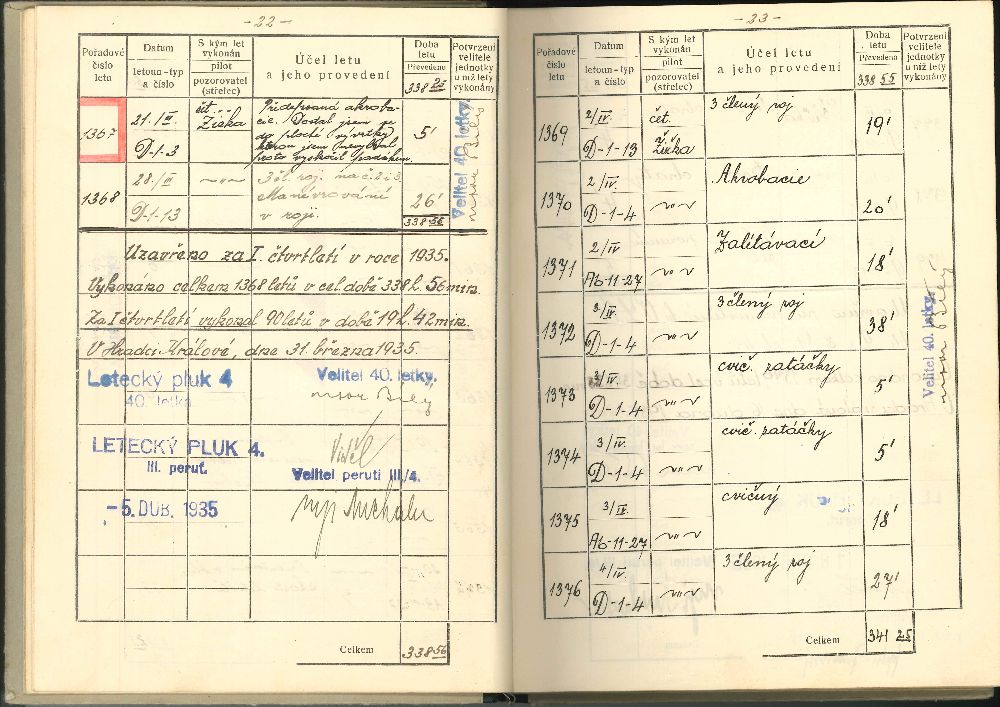 - 22 -
Pořadové číslo letu
Datum
letoun-typ a číslo
S kým let vykonán
pilot
pozorovatel (střelec)
Účel letu
a jeho provedení
Doba letu
Převedeno
338 25
Potvrzení velitele jednotky u níž lety vykonány
1367
21./III.
D-1-3
čet. Žižka
Předepsaná akroba-
cie. Dostal jsem se
do ploché vývrtky
kterou jsem
proto vyskočil padákem.
5'
1368
28./III
D-1-13
3 čl. roj. na č. 2 i 3
Manévrování
v roji.
26'
338 56
Velitel 40. letky.
Uzavřeno za I. čtvrtletí v roce 1935.
Vykonáno celkem 1368 letů v cel. době 338 h. 56 min.
Za I čtvrtletí vykonal 90 letů v době 19 h. 42 min.
V Hradci Králové, dne 31. března 1935.
Letecký pluk 4
40. letka
Velitel 40. letky.
LETECKÝ PLUK 4.
III. peruť.
Viděl
Velitel peruti III/4.
-5. DUB. 1935
Celkem
338 56
- 23 -
Pořadové číslo letu
Datum
letoun-typ a číslo
S kým let vykonán
pilot
pozorovatel (střelec)
Účel letu
a jeho provedení
Doba letu
Převedeno
338 55
Potvrzení velitele jednotky u níž lety vykonány
1369
2/IV.
D-1-13
čet. Žižka
3 člený roj
19'
1370
2/IV.
D-1-4
Akrobacie
20'
1371
2/IV
Ab-11-27
Zalítávací
18'
1372
3/IV.
D-1-4
3 člený roj
38'
1373
3/IV.
D-1-4
cvič. patáčky
5'
1374
3/IV.
D-1-4
cvič. patáčky
5'
1375
3/IV.
Ab-11-27
cvičný
18'
1376
4/IV.
D-1-4
3 člený roj
27'
Velitel 40. letky.
Celkem
341 25